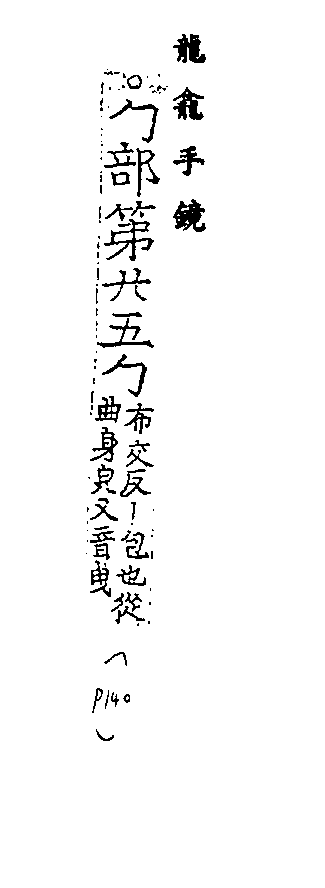 龍龕手鏡
○勹部第廿五勹
布交反丨包也從
曲身皃又音曳
(P140)